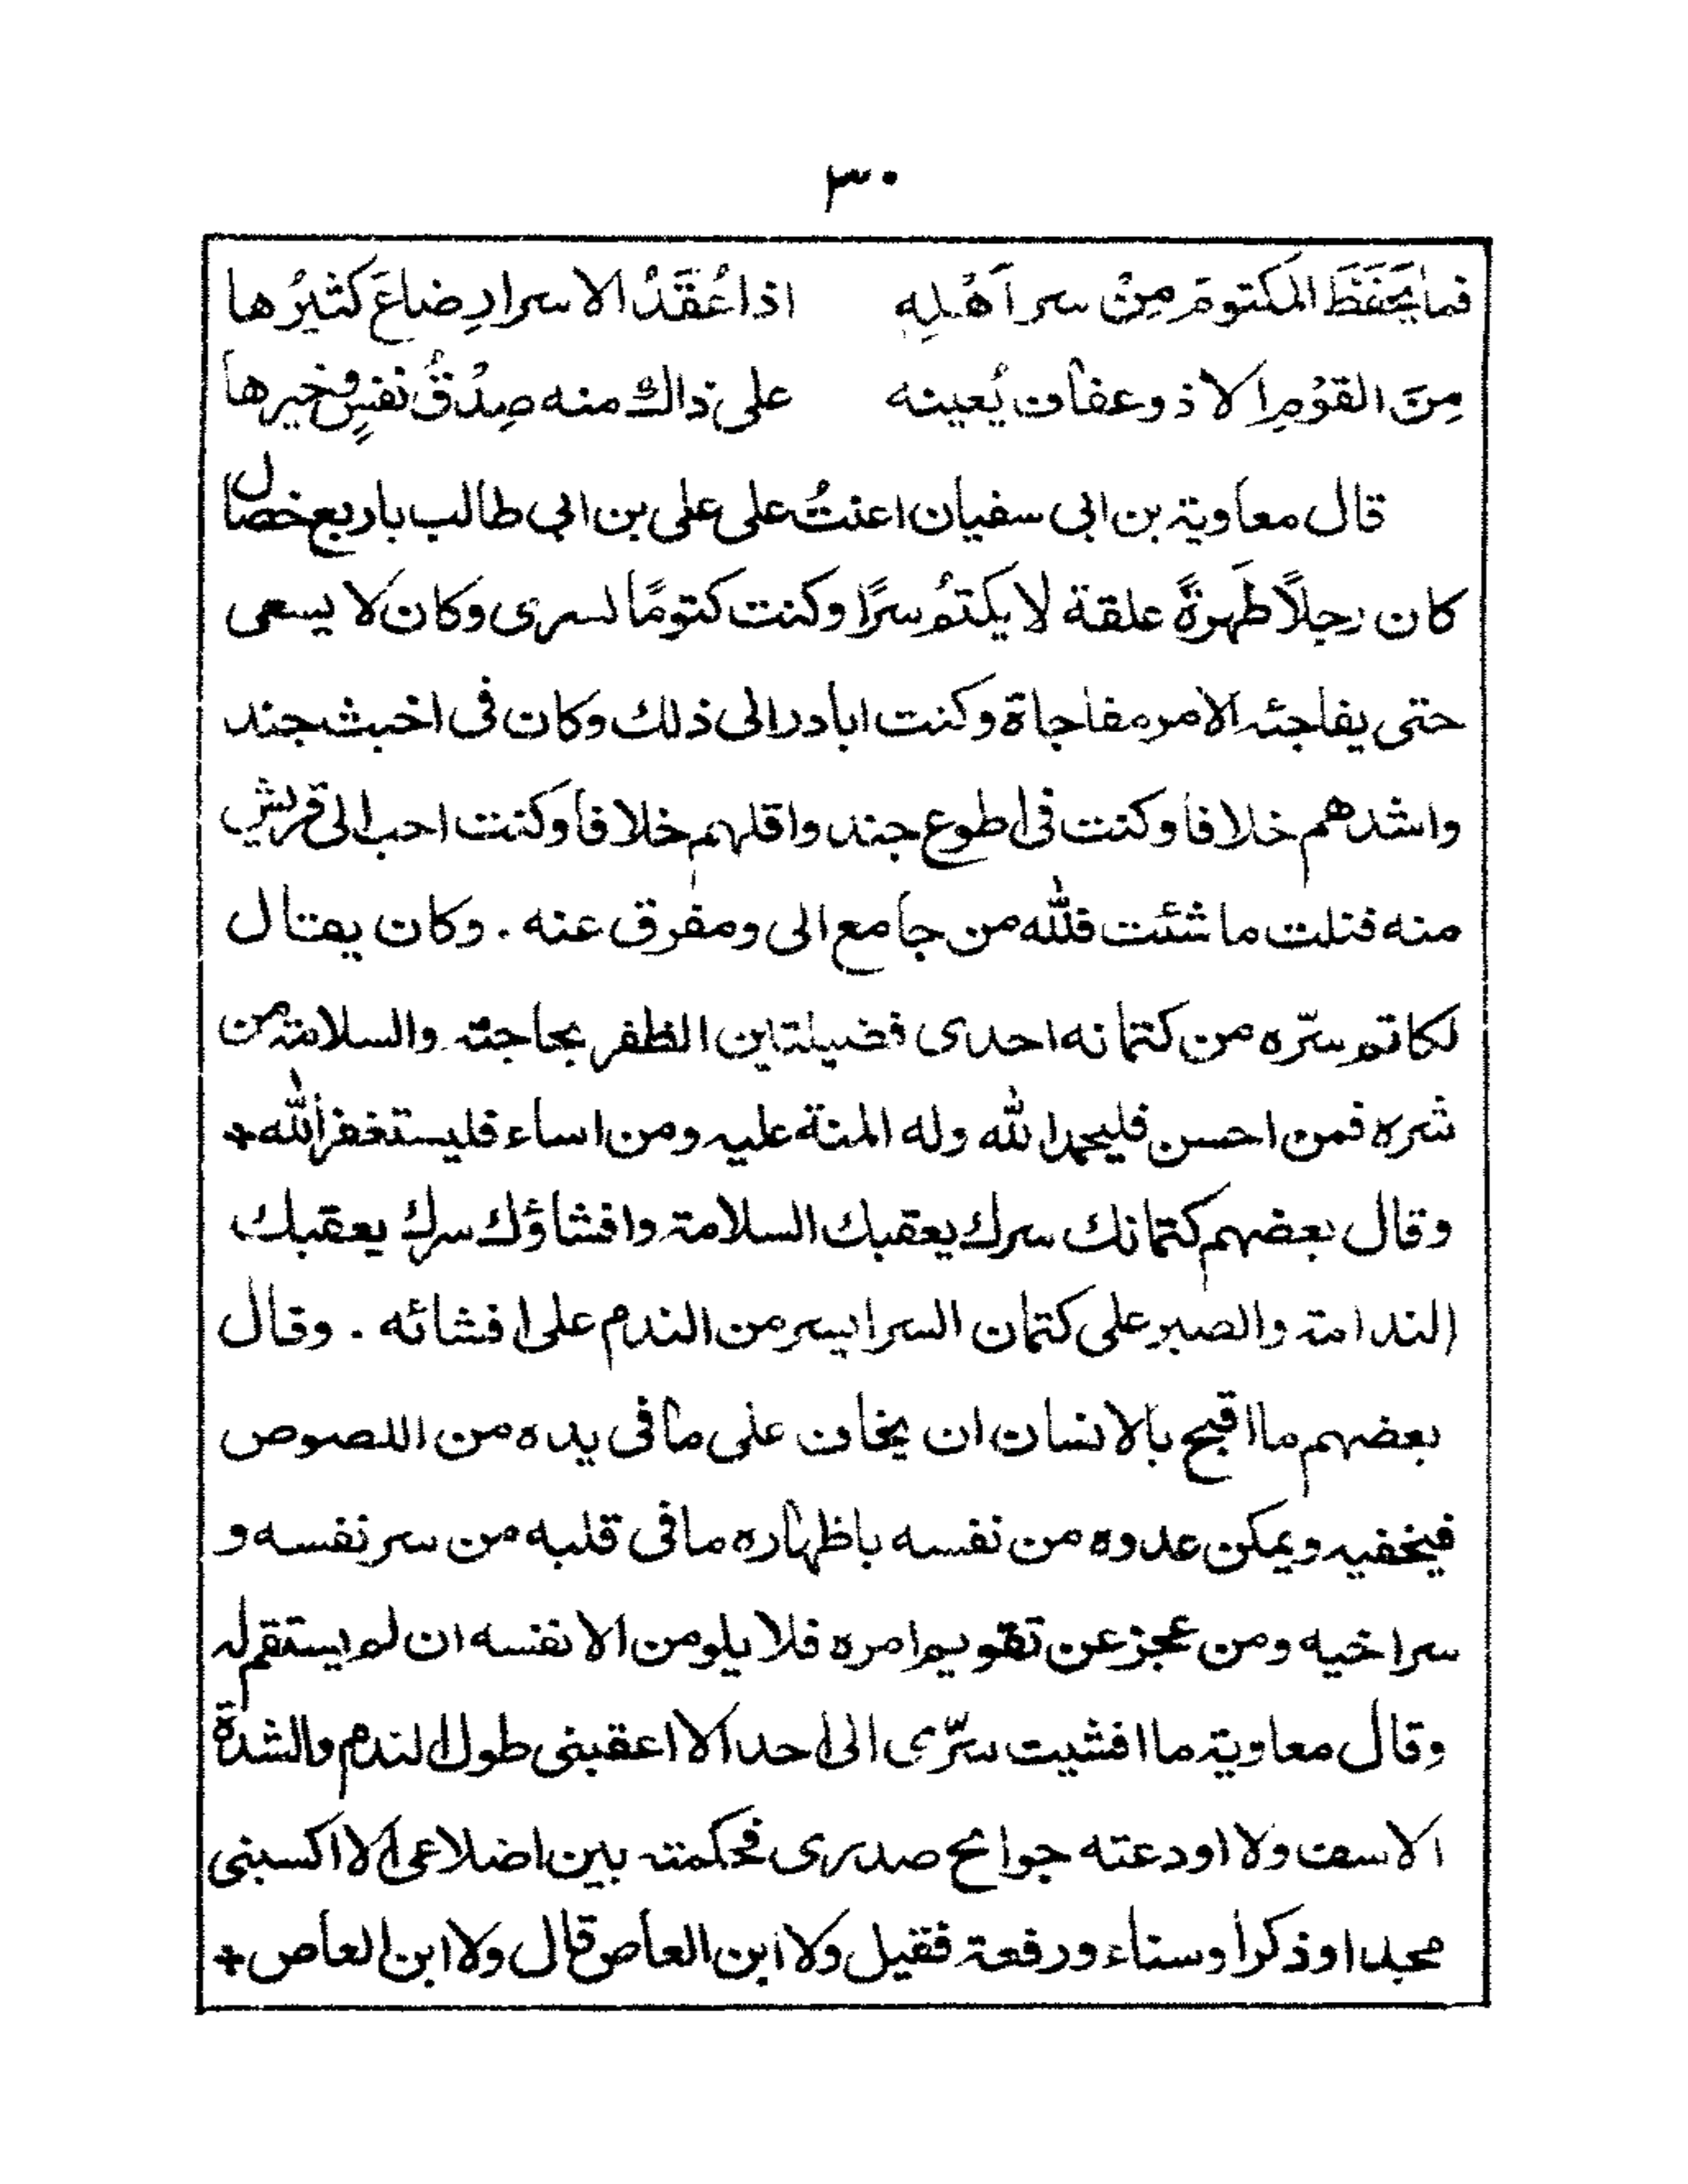 ٣٠
فما يَحفَظَ المكتومَ مِنْ سر اَهْلِه اذا عُقَدُ الاسرارِ ضاعَ كثيرُها
مِنَ القوْمِ الا ذو عفاف يُعينه على ذاك منه صِدْقُ نفسٍ وخيرها
قال معاوية بن ابى سفيان اعنتُ على على بن ابى طالب باربع خصال
كان رجلاً ظَهِرةً علقة لا يكتمُ سرًا وكنت كتومًا لسرى وكان لا يسعى
حتى يفاجئه الامر مفاجاة وكنت ابادر الى ذلك وكان فى اخبث جند
واشدهم خلافا وكنت فى اطوع جند واقلهم خلافا وكنت احب الى قريش
منه فنلت ما شئت فلله من جامع الى ومفرق عنه . وكان يقال
لكاتم سرّه من كتمانه احدى فضيلتاين الظفر بحاجته والسلامة من
شره فمن احسن فليحمد الله وله المنة عليه ومن اساء فليستغفر الله +
وقال بعضهم كتمانك سرك يعقبك السلامة وافشاؤك سرك يعقبك
الندامة والصبر على كتمان السر ايسر من الندم على افشائه . وقال
بعضهم ما اقبح بالانسان ان يخاف على ما فى يده من اللصوص
فيخفيه ويمكن عدوه من نفسه باظهاره ما فى قلبه من سر نفسه و
سر اخيه ومن عجز عن تقويم امره فلا يلومن الا نفسه ان لم يستقم له
وقال معاوية ما افشيت سرّى الى احد الا اعقبنى طول الندم والشدة
الاسف ولا اودعته جوانح صدرى فحكمته بين اضلاعى الا اكسبنى
مجدا وذكرا وسناء ورفعة فقيل ولا ابن العاص قال ولا ابن العاص +